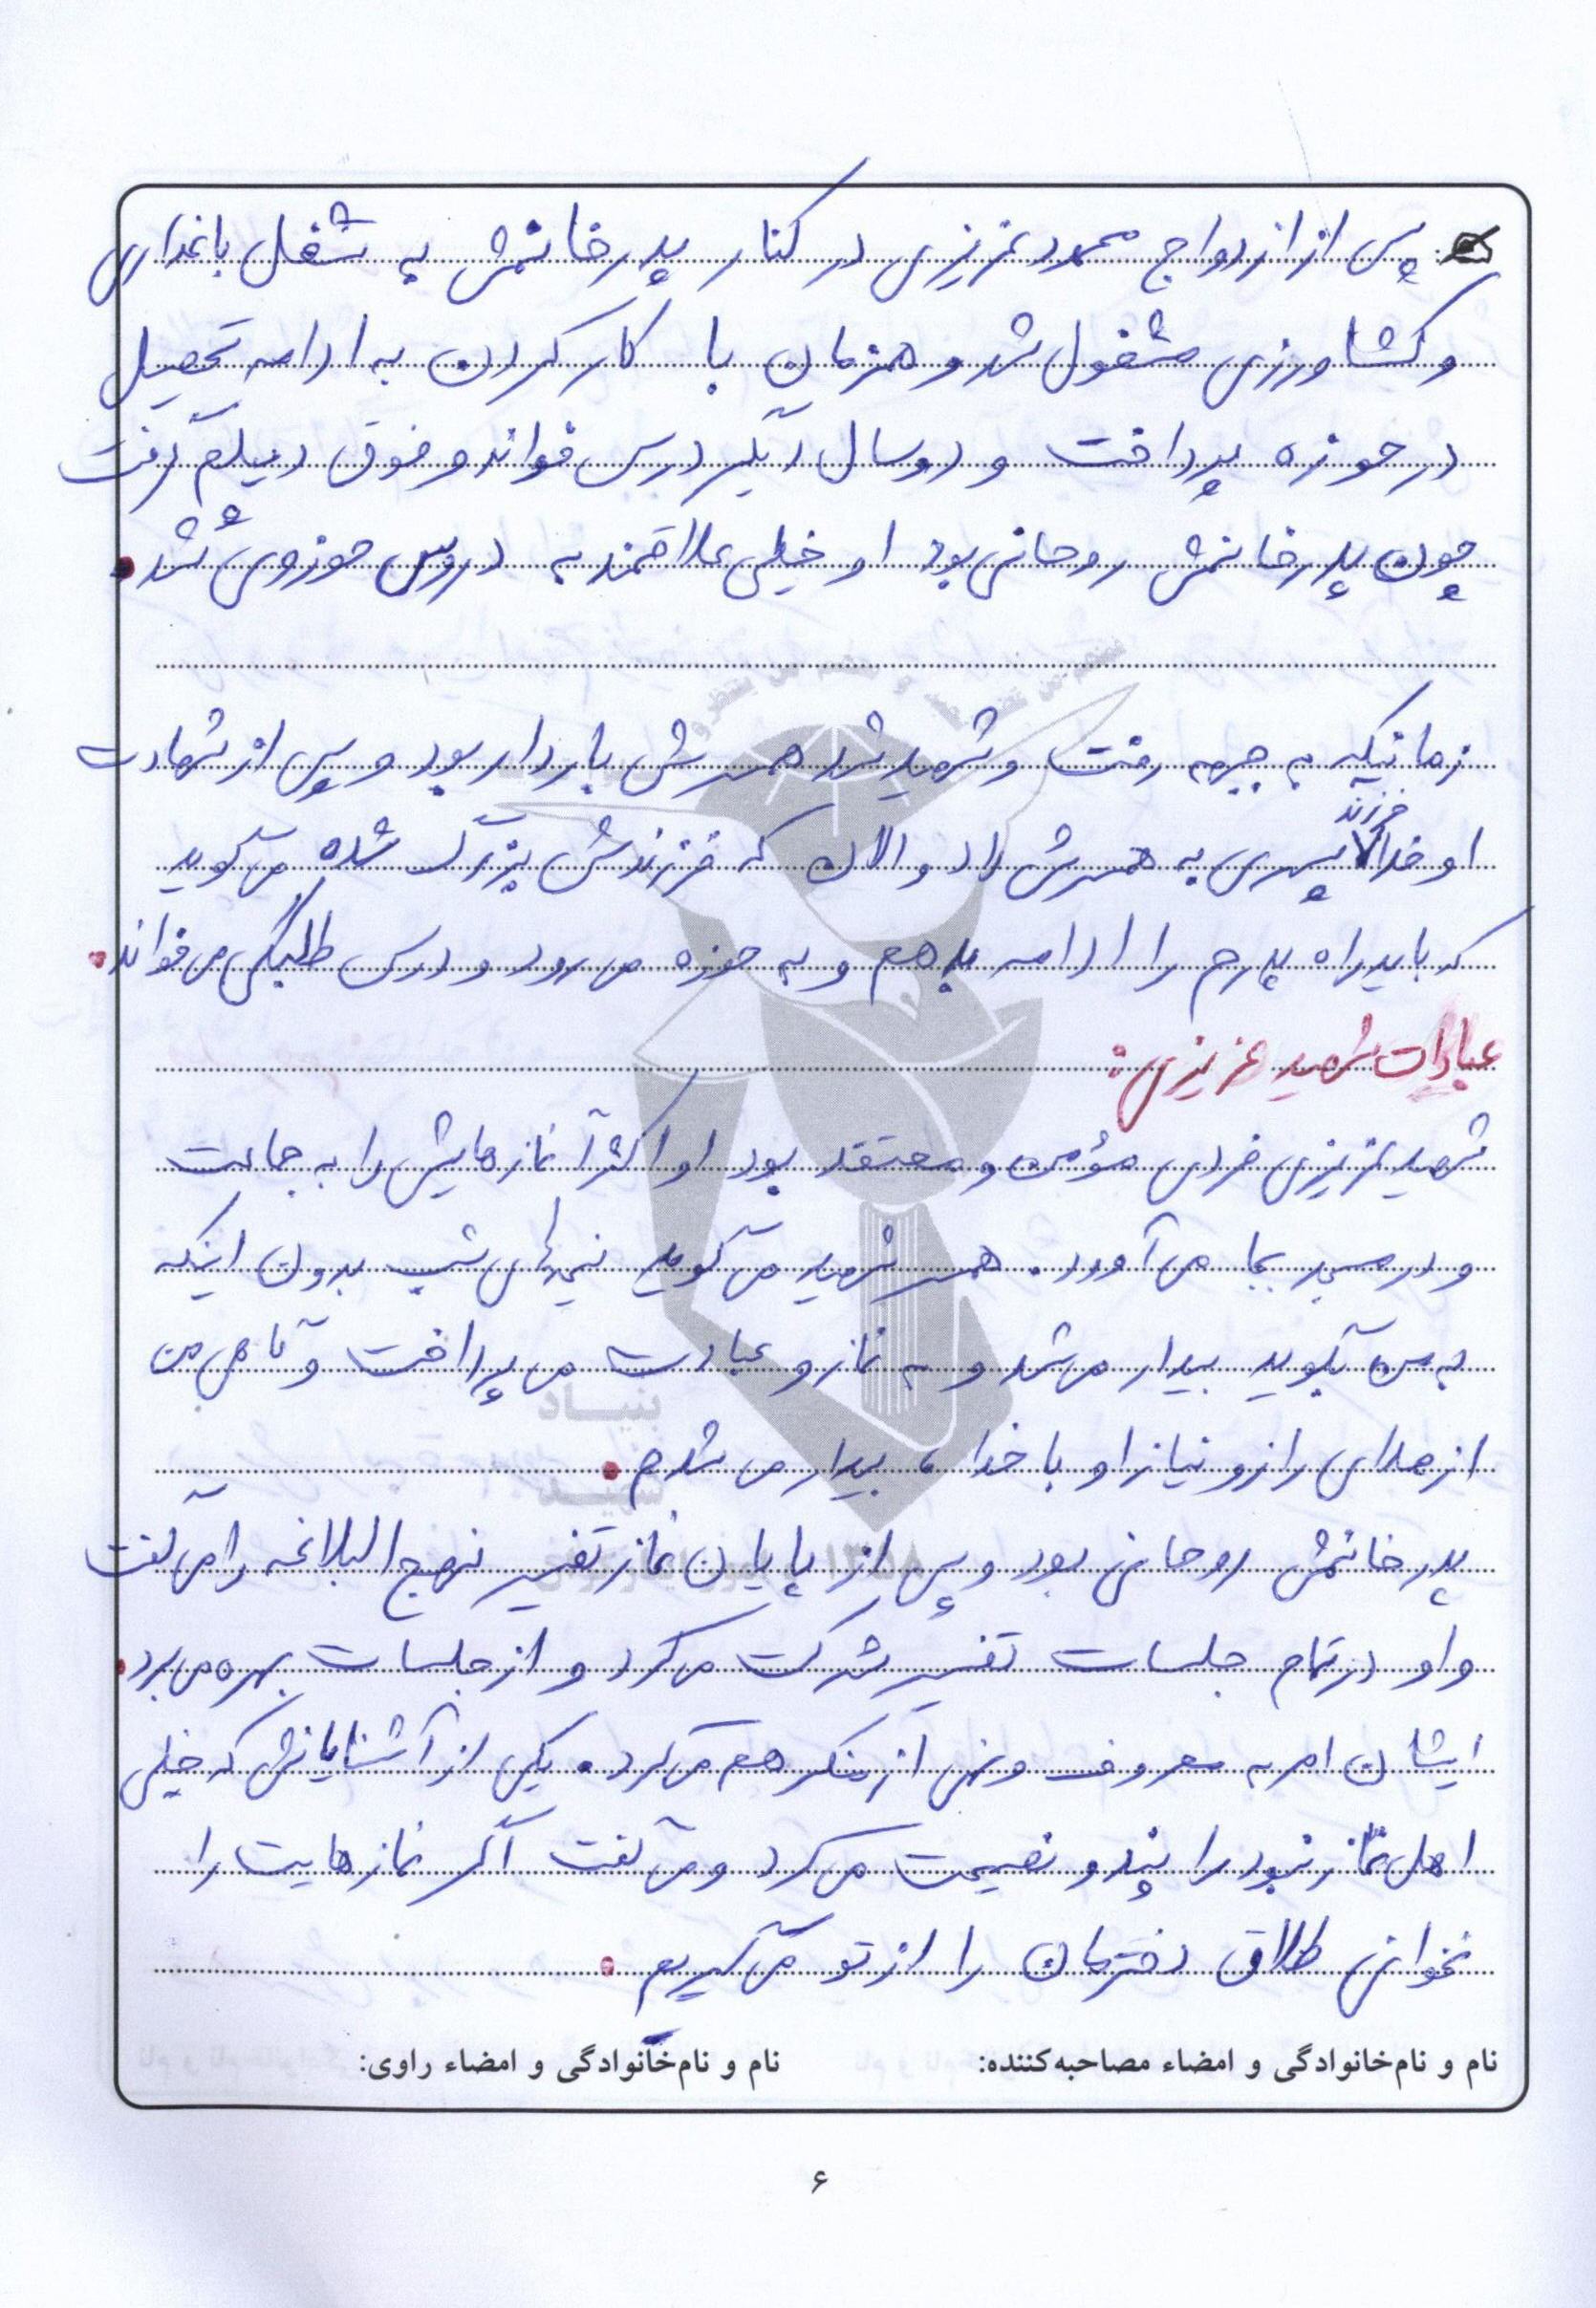 پس از ازدواج محمود عزیزی در کنار پدر خانمش به شغل باغداری
و کشاورزی مشغول شد و همزمان با کار کردن به ادامه تحصیل
در حوزه پرداخت و دو سال دیگر درس خواند و فوق دیپلم گرفت
چون پدر خانمش روحانی بود او خیلی علاقمند به دروس حوزوی شد.
زمانیکه به جبهه رفت و شهید شد همسرش باردار بود و پس از شهادت
او خدا فرزند پسری به همسرش داد و الان که فرزندش بزرگ شده می گوید
که باید راه پدرم را ادامه بدهم و به حوزه می رود و درس طلبگی می خواند.
عبادات شهید عزیزی:
شهید عزیزی فردی مؤمن و معتقد بود او اکثراً نمازهایش را به جماعت
و در مسجد بجا می آورد. همسر شهید می گوید نیمه های شب بدون اینکه
به من بگوید بیدار می شد و به نماز و عبادت می پرداخت و گاهی من
از صدای راز و نیاز او با خدا، بیدار می شدم.
پدر خانمش روحانی بود و پس از پایان نماز تفسیر نهج البلاغه را می گفت
و او در تمام جلسات تفسیر شرکت می کرد و از جلسات بهره می برد.
ایشان امر به معروف و نهی از منکر هم می کرد. یکی از آشنایانش که خیلی
اهل نماز نبود را پند و نصیحت می کرد و می گفت اگر نمازهایت را
نخوانی طلاق دخترمان را از تو می گیریم.
نام و نام‌خانوادگی و امضاء مصاحبه‌کننده: نام و نام‌خانوادگی و امضاء راوی:
۶